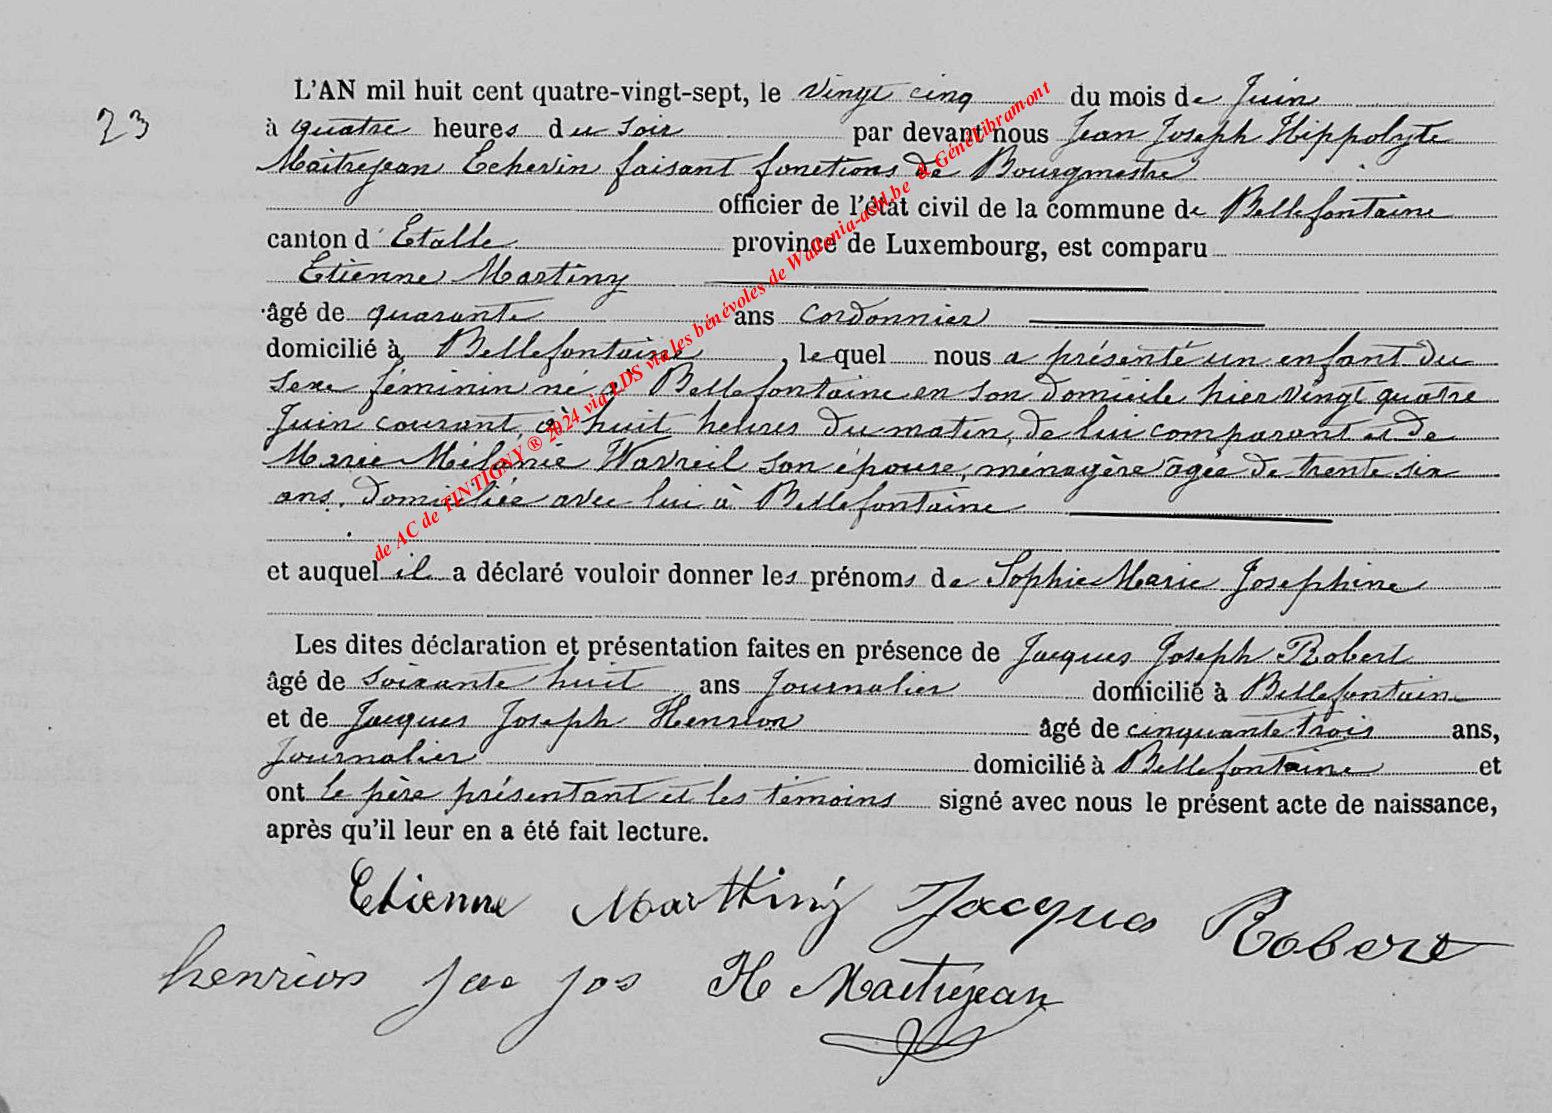 23
L'AN mil huit cent quatre-vingt-sept, le vingt cinq du mois de Juin
à quatre heures du soir par devant nous Jean Joseph Hippolyte
Maitrejean Echevin faisant fonctions de Bourgmestre
officier de l'état civil de la commune de Bellefontaine
canton d'Etalle province de Luxembourg, est comparu
Etienne Martiny
âgé de quarante ans cordonnier
domicilié à Bellefontaine, lequel nous a présenté un enfant du
sexe féminin né à Bellefontaine en son domicile hier vingt quatre
Juin courant à huit heures du matin, de lui comparant et de
Marie Mélanie Wavreil son épouse, ménagère âgée de trente six
ans, domiciliée avec lui à Bellefontaine
et auquel il a déclaré vouloir donner les prénoms de Sophie Marie Josephine
Les dites déclaration et présentation faites en présence de Jacques Joseph Robert
âgé de soixante huit ans Journalier domicilié à Bellefontaine
et de Jacques Joseph Henrion âgé de cinquante trois ans,
Journalier domicilié à Bellefontaine et
ont le père présentant et les témoins signé avec nous le présent acte de naissance,
après qu'il leur en a été fait lecture.
Etienne Marthiny Jacques Robert
henrion jac jos H Maitrejean
de AC de TINTIGNY ® 2024 via LDS via les bénévoles de Wallonia-asbl.be & GénéLibramont